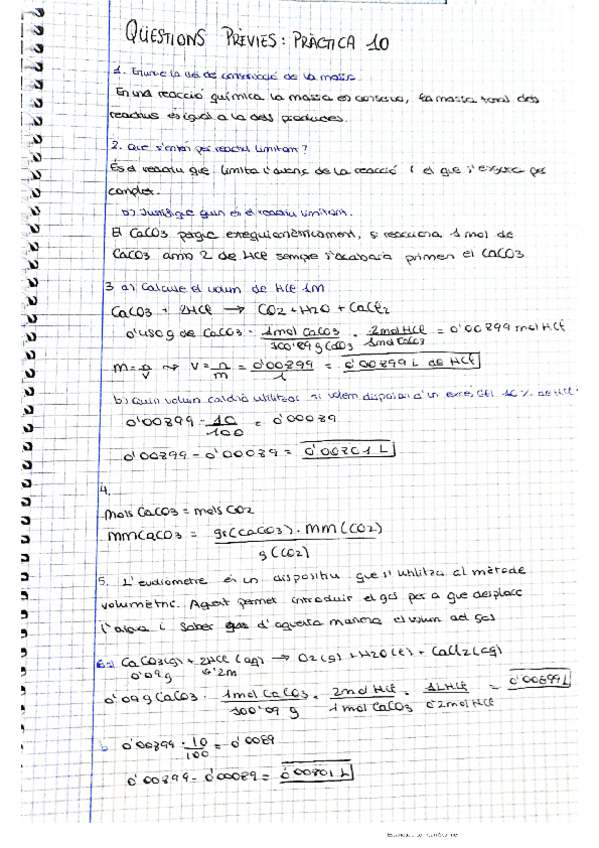 QÜESTIONS PRÈVIES: PRÀCTICA 10
1. Enuncia la llei de conservació de la massa.
En una reacció química la massa es conserva, la massa total dels
reactius és igual a la dels productes.
2. Que s'entén per reactiu limitant?
És el reactiu que limita l'avenç de la reacció i el que s'exgura per
complet.
b) Justifica quin és el reactiu limitant.
El CaCO3 perque estequiomètricament, si reacciona 1 mol de
CaCO3 amb 2 de HCl sempre s'acabarà primer el CaCO3
3 a) Calcula el volum de HCl 1M
CaCO3 + 2HCl → CO2 + H2O + CaCl2
0'450g de CaCO3 · 1mol CaCO3 / 100'89 g CaCO3 · 2mol HCl / 1mol CaCO3 = 0'00899 mol HCl
M = n/V → V = n/M = 0'00899/1 = 0'00899 L de HCl
b) Quin volum caldrà utilitzar si volem disposar d'un excés del 10% de HCl?
0'00899 · 10/100 = 0'00089
0'00899 - 0'00089 = 0'00801 L
4.
mols CaCO3 = mols CO2
MMCaCO3 = gs(CaCO3) · MM(CO2) / g(CO2)
5. L'eudiometre és un dispositiu que s'utilitza al mètode
volumètric. Aquest permet introduir el gas per a que desplace
l'aigua i saber d'aquesta manera el volum del gas
6a) CaCO3(s) + 2HCl (aq) → O2(g) + H2O(l) + CaCl2(aq)
0'09g 0'2M
0'09g CaCO3 · 1mol CaCO3 / 100'09 g · 2mol HCl / 1mol CaCO3 · 1L HCl / 0'2mol HCl = 0'00899 L
b 0'00899 · 10/100 = 0'0089
0'00899 - 0'00089 = 0'00801 L